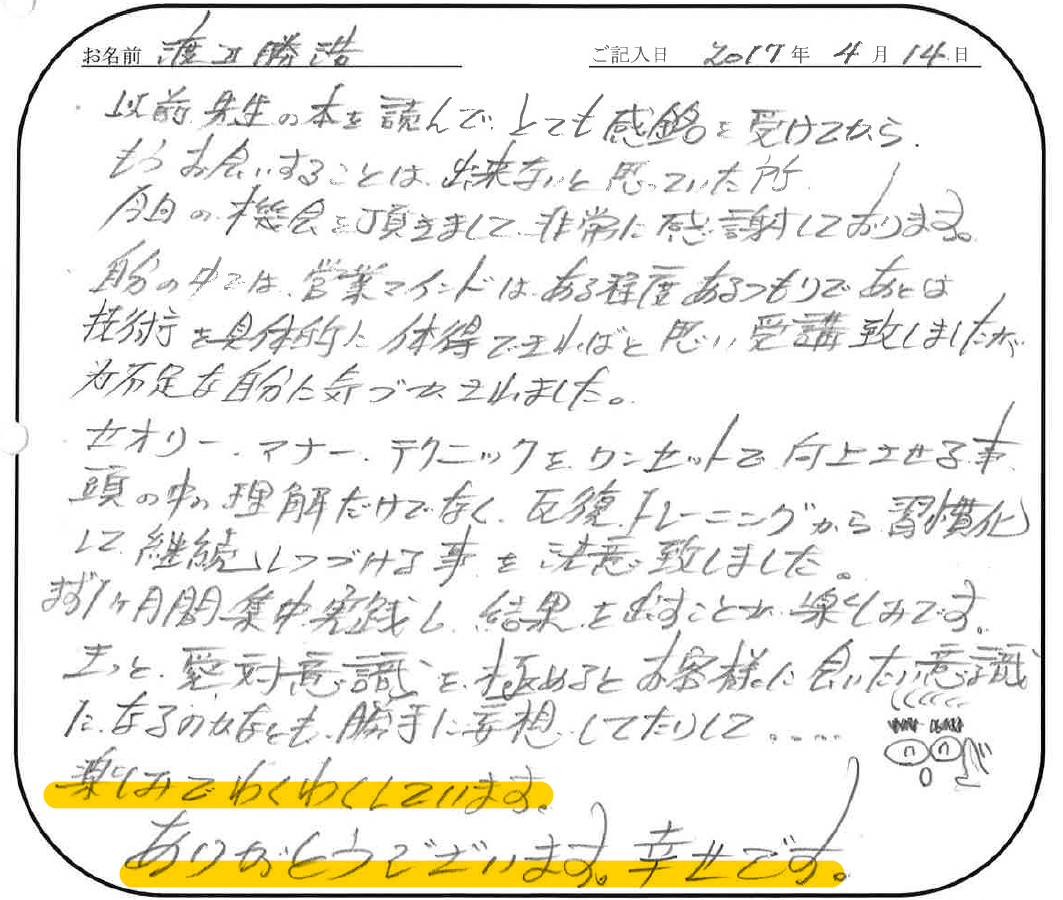 お名前 渡辺勝浩 ご記入日 2017年4月14日
・以前先生の本を読んで、とても感銘を受けてから、
もうお会いすることは、出来ないと思っていた所、
今日の機会を頂きまして、非常に感謝しております。
・自分の中では、営業マインドは、ある程度あるつもりで、あとは
技術を具体的に体得できればと思い、受講致しましたが、
力不足な自分に気づかされました。
・セオリー、マナー、テクニックを、ワンセットで、向上させる事、
頭の中の理解だけでなく、反復トレーニングから習慣化
して、継続しつづける事を決意致しました。
まず1ヶ月間集中実践し、結果を出すことが楽しみです。
きっと、愛対意識を極めるとお客様に会いたい意識
になるのかなとも、勝手に妄想してたりして.....
楽しみでわくわくしています。
ありがとうございます。幸せです。